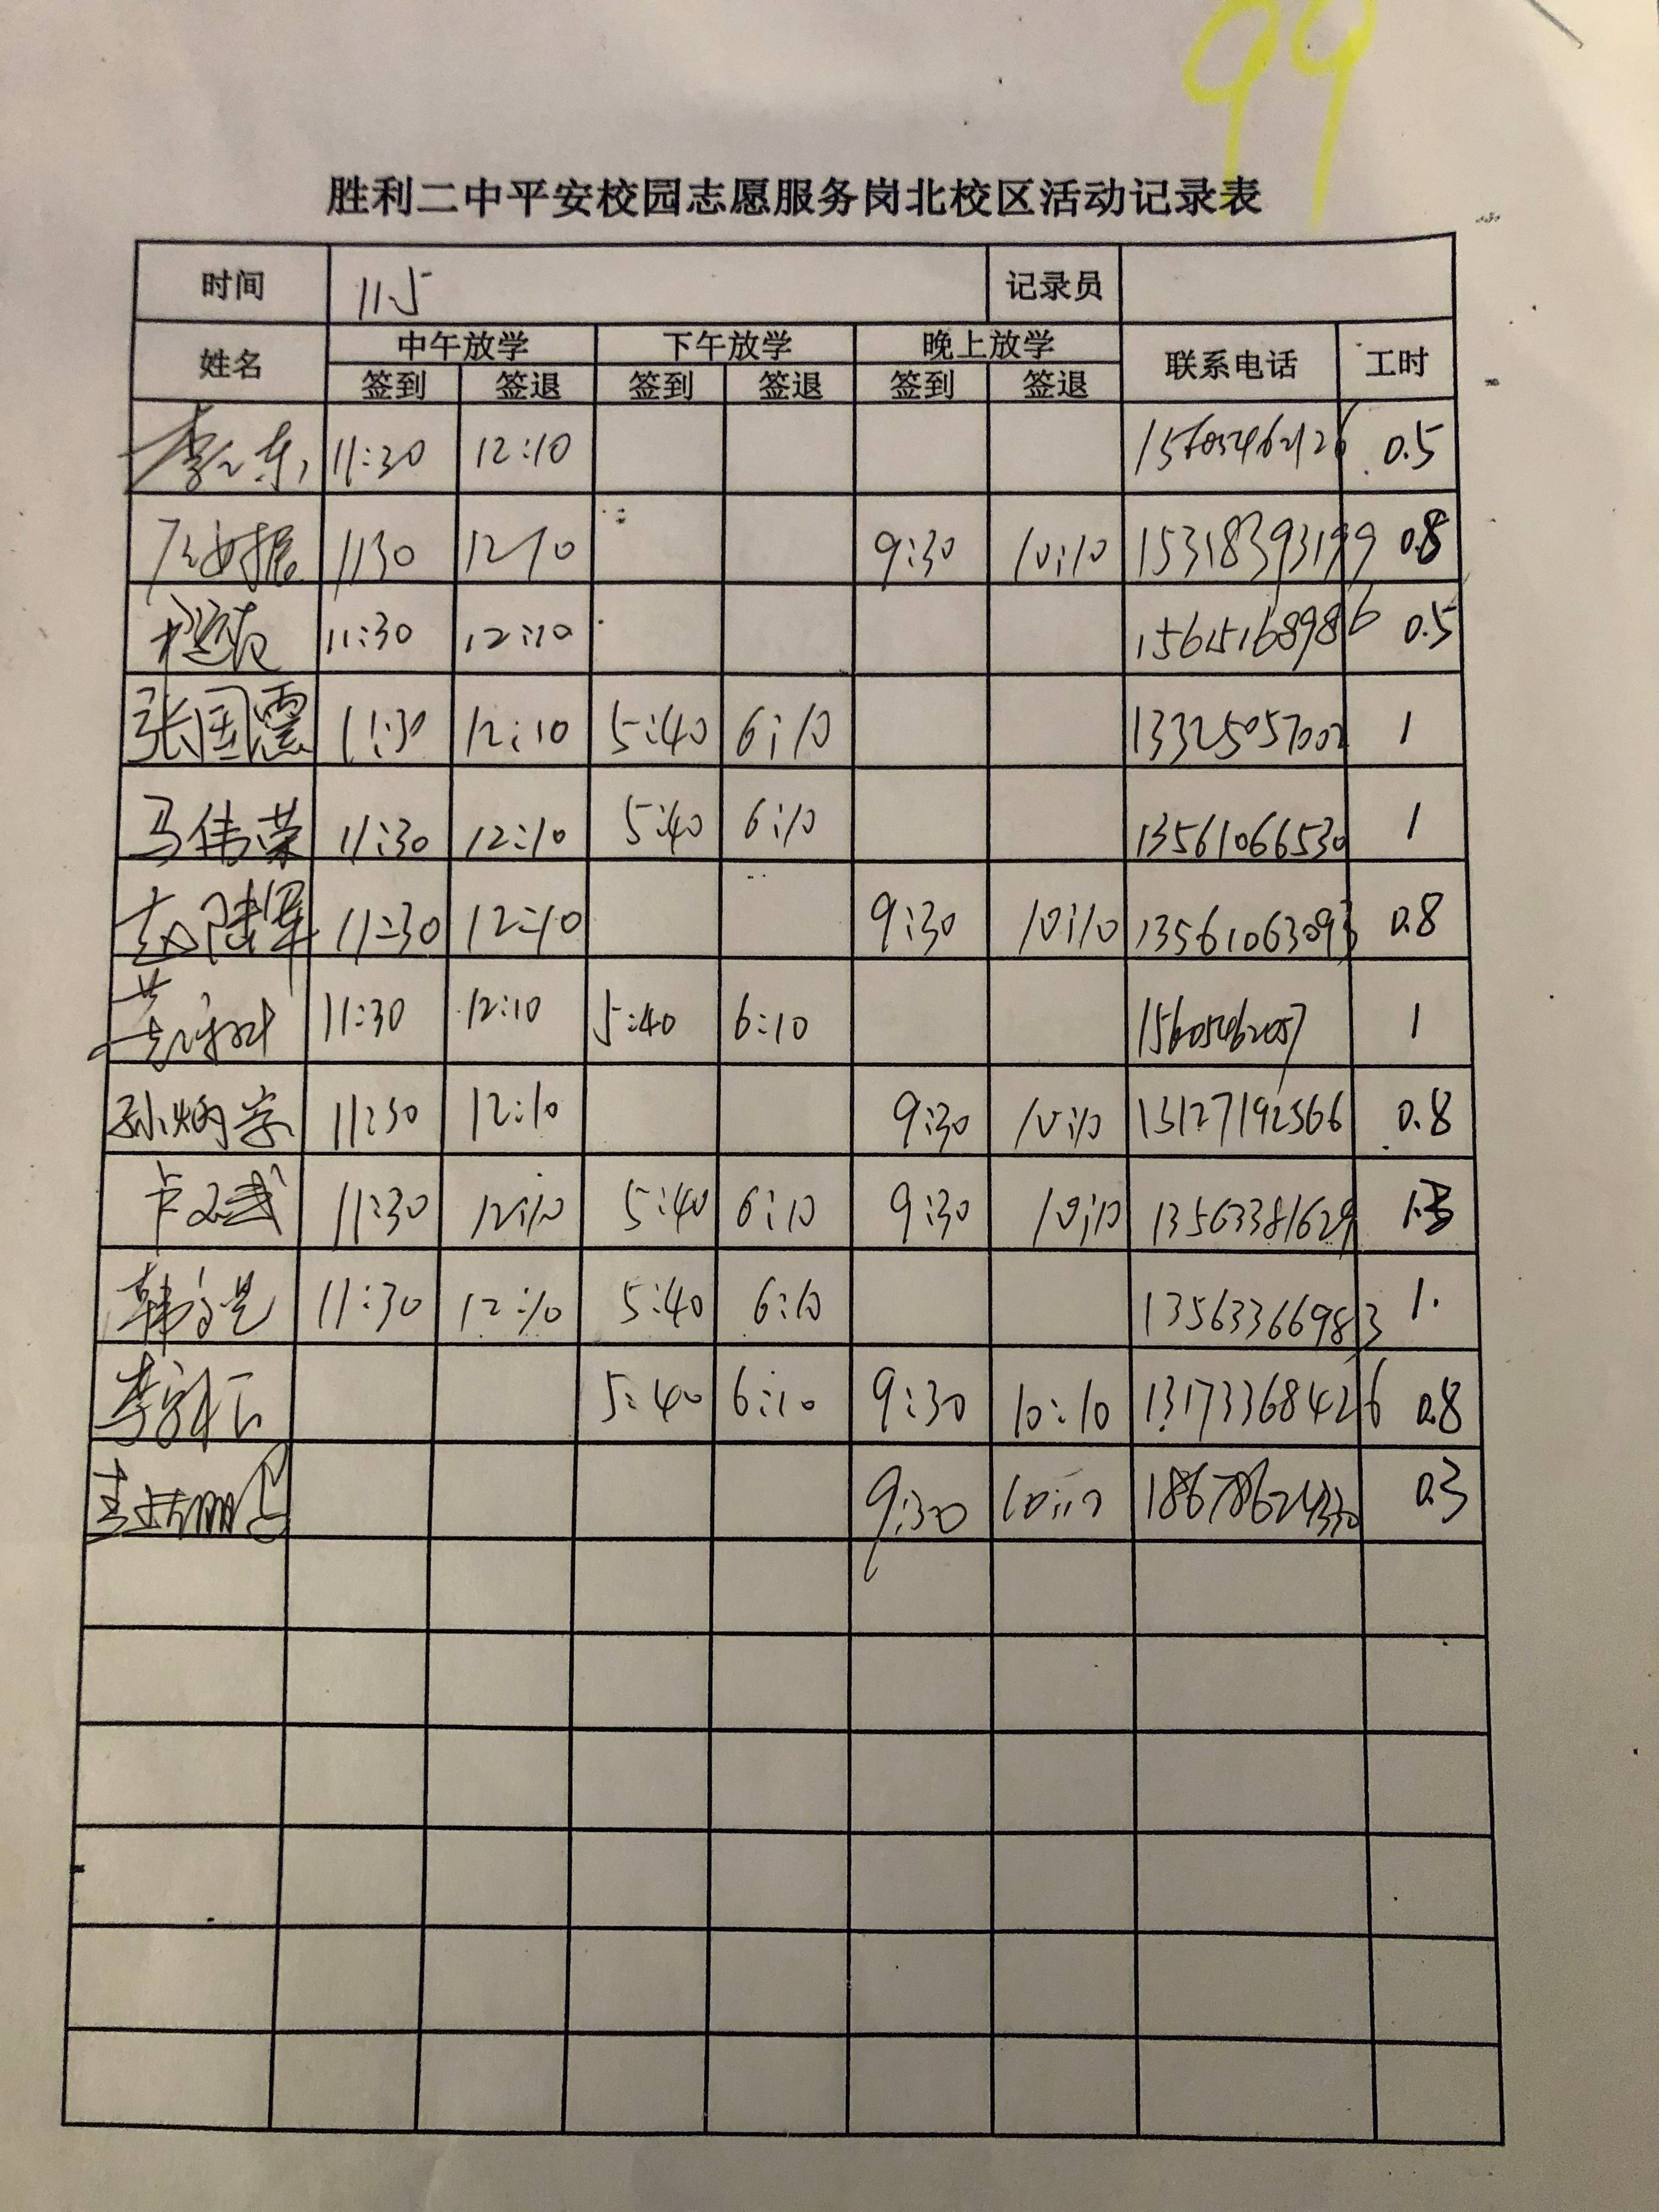 99
胜利二中平安校园志愿服务岗北校区活动记录表
时间 11.5 记录员
姓名 中午放学 下午放学 晚上放学 联系电话 工时
签到 签退 签到 签退 签到 签退
11:30 12:10 15605462126 0.5
1130 12:10 9:30 10:10 15318393199 0.8
11:30 12:10 15615168986 0.5
张国震 11:30 12:10 5:40 6:10 13325057002 1
马伟荣 11:30 12:10 5:40 6:10 13561066530 1
赵陆军 11:30 12:10 9:30 10:10 13561063093 0.8
11:30 12:10 5:40 6:10 15605462057 1
孙炳学 11:30 12:10 9:30 10:10 13127192566 0.8
卢文武 11:30 12:10 5:40 6:10 9:30 10:10 13563381629 1.3
11:30 12:10 5:40 6:10 13563366983 1.
5:40 6:10 9:30 10:10 13173368426 0.8
9:30 10:10 0.3